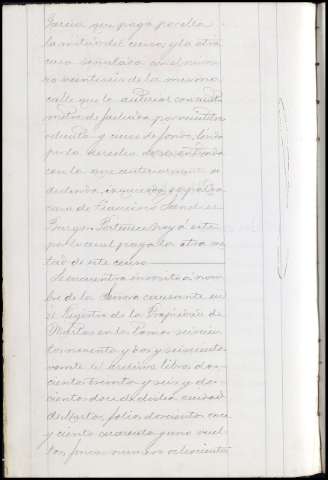 Garcia que paga por ella
la mitad del censo, y la otra
casa señalada con el nume
ro veintiseis de la misma
calle que la anterior con siete
metros de fachada por veintitres
ochenta y cinco de fondo, linda
por la derecha de su entrada
con la que anteriormente se
deslinda, izquierda y espalda
casa de Francisco Sanchez
Burgos. Pertenece hoy á este
por lo cual paga la otra mi
tad de este censo
Se encuentra inscrito á nom
bre de la Señora causante en
el Registro de la Propiedad de
Martos en los tomos seiscien
tos noventa y dos y seiscientos
veinte el archivo, libros dos
cientos treinta y seis y dos
cientos doce de dicha ciudad
de Martos, folios doscientos once
y ciento cuarenta y uno vuel
tos, fincas numero ochocientos